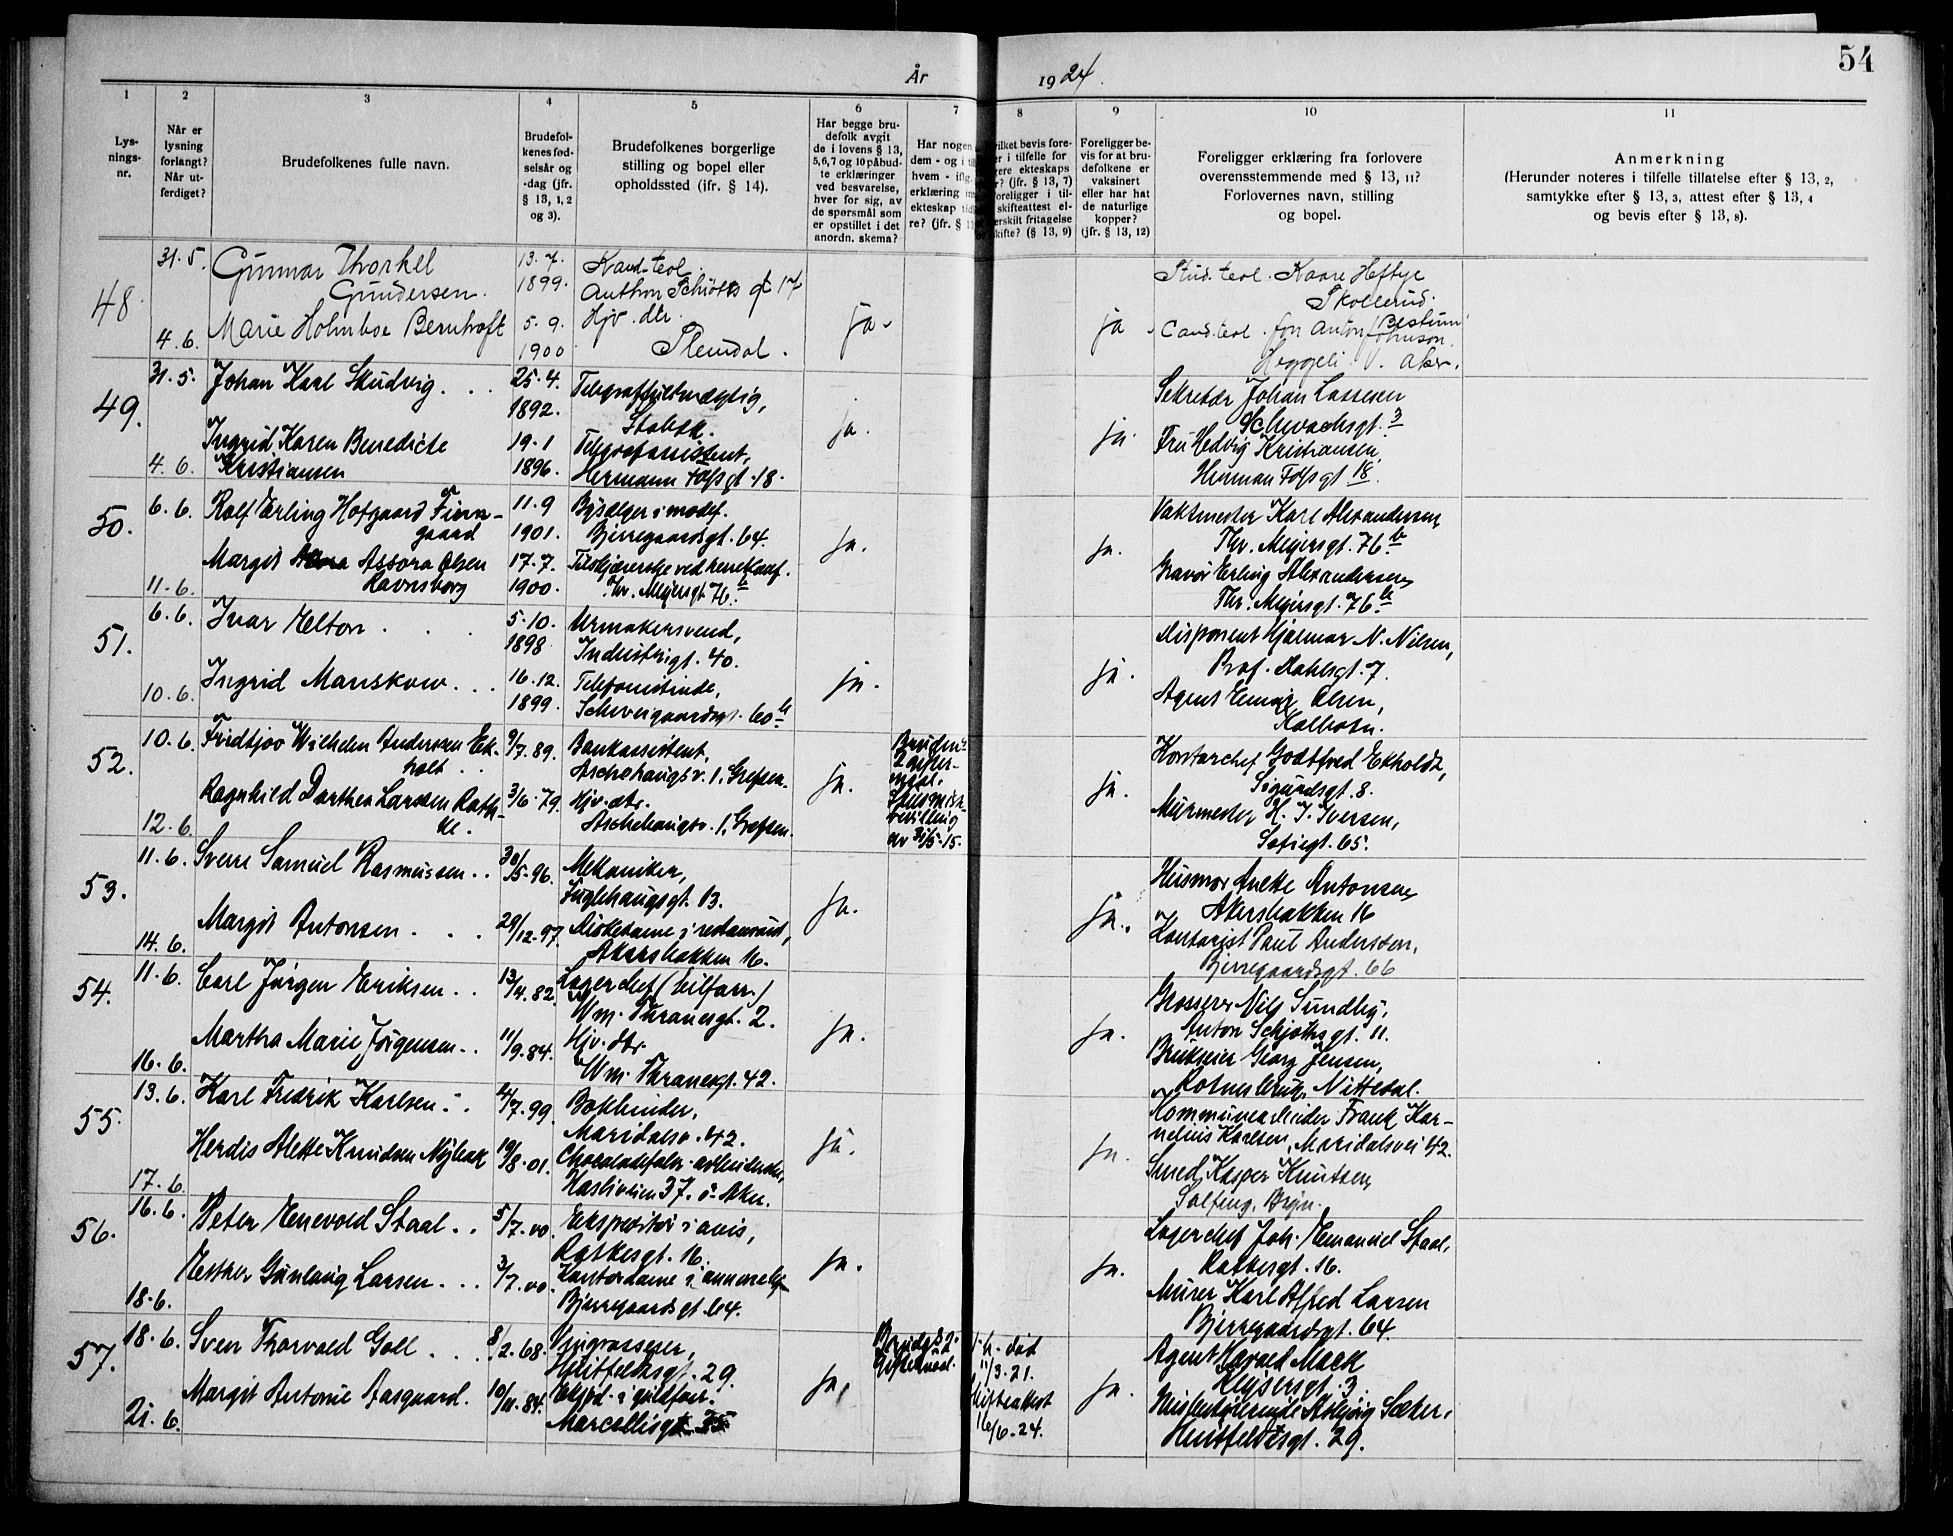 54
År 1924.
1 2 3 4 5 6 7 8 9 10 11
Lys-
nings-
nr.
Når er
lysning
forlangt?
Når ut-
ferdiget?
Brudefolkenes fulle navn.
Brudefol-
kenes fød-
selsår og
-dag (jfr.
§ 13, 1, 2
og 3).
Brudefolkenes borgerlige
stilling og bopel eller
opholdssted (ifr. § 14).
Har begge bru-
defolk avgit
de i lovens § 13,
5, 6, 7 og 10 påbud-
te erklæringer
ved besvarelse,
hver for sig, av
de spørsmål som
er opstillet i det
anordn. skema?
Har nogen
dem - og i
hvem - iflg.
erklæring
ekteskap
re? (jfr. §
bevis fore-
i tilfelle for
ekteskaps
r? (jfr. § 13, 7)
i til-
skifteattest el-
fritagelse
skifte? (§ 13, 9)
Foreligger be-
vis for at bru-
defolkene er
vaksinert
eller har hat
de naturlige
kopper?
(jfr. § 13, 12)
Foreligger erklæring fra forlovere
overensstemmende med § 13, 11?
Forlovernes navn, stilling
og bopel.
Anmerkning
(Herunder noteres i tilfelle tillatelse efter § 13, 2,
samtykke efter § 13, 3, attest efter § 13, 4
og bevis efter § 13, 8).
48.
31.5. Gunnar Thorkel
Gundersen.
13.7.
1899.
Kand. teol.
Anthon Schiøtts gt 17
4.6. Marie Holmboe Bernhoft
5.9.
1900
Hjv. dtr.
Slemdal.
ja.
ja.
Stud. teol. Kaare Heftye
Skollerud.
Bestum
Cand. teol. Jon Anton Johnson.
Heggeli V. Aker.
49.
31.5. Johan Karl Skudvig...
25.4.
1892.
Telegraffuldmægtig,
Stabæk.
4.6. Ingrid Karen Benedicte
Kristiansen
19.1
1896.
Telegrafassistent,
Hermann Fossgt. 18.
ja.
ja.
Sekretær Johan Lassesen
Schwachsgt. 3
Fru Hedvig Kristiansen,
Herman Fossgt 18.
50.
6.6. Rolf Erling Hofgaard Finn-
gaard
11.9
1901.
Bysælger i
Bjerregaardsgt. 64.
11.6. Margit Assora Olsen
Ravnsborg
17.7.
1900.
Thv. Meyersgt 76 b.
ja.
ja.
Vaktmester Karl Alexandersen,
Thv. Meyersgt. 76 b
Gravør Erling Alexandersen,
Thv. Meyersgt. 76 b
51.
6.6. Ivar Melton...
5.10.
1898
Urmakersvend,
Industrigt. 40.
10.6. Ingrid Manskow...
16.12.
1899.
Telefonistinde,
Schweigaardsgt. 60 b
ja.
ja.
Disponent Hjalmar N. Nilsen,
Prof. Dahlsgt. 7.
Agent Einar Olsen,
Kolbotn.
52.
10.6. Fridtjov Wilhelm Andersen Ek-
holt..
9/7.89.
Bankassistent,
Aschehaugsv. 1, Grefsen.
12.6. Ragnhild Dorthea Larssen Rath-
ke.
3/6.79.
Hjv. dtr.
Aschehaugsv. 1, Grefsen.
ja.
Brudens
2 gifter-
maal.
bevilling
av 31/5-15.
ja.
Kontorchef Godtfred Ekholdt,
Sigurdsgt. 8.
Murmester H. J. Iversen,
Sofiegt. 65.
53.
11.6. Sverre Samuel Rasmussen..
30/5-96.
Mekaniker,
Fuglehaugsgt. 13.
14.6. Margit Antonsen...
29/12-97
Diskedame i restaurant,
Akersbakken 16.
ja.
ja.
Husmor Anette Antonsen,
Akersbakken 16
Kontorist Paul Andersen,
Bjerregaardsgt. 66
54.
11.6. Carl Jørgen Eriksen..
13/4.82.
Lagerchef (bilforr.)
Wm. Thranesgt. 2.
16.6. Martha Marie Jørgensen..
11/9.84.
Hjv. dtr.
Wm. Thranesgt. 42.
ja.
ja.
Grosserer Nils Sundby,
Anton Schjøthsgt. 11.
Brukseier Georg Jensen,
Rotnesbruk, Nittedal.
55.
13.6. Karl Fredrik Karlsen..
Bokbinder,
Maridalsv. 42.
17.6. Herdis Alette Knudsen Nybak
19/8-01.
Chocoladefabr. arbeiderske,
Hasliveien 37. Ø. Aker.
ja.
ja.
Kommunearbeider Frank Kor-
nelius Karlsen, Maridalsvei 42.
Smed Kasper Knutsen,
Solfeng, Bryn.
56.
16.6. Peter Enevold Staal..
5/7.00.
Ekspeditør i avis,
Ratkesgt. 16.
18.6. Esther Gunlaug Larsen...
3/7.00.
Kontordame i
Bjerregaardsgt 64.
ja.
ja.
Lagerchef Joh. Emanuel Staal,
Ratkesgt. 16.
Murer Karl Alfred Larsen
Bjerregaardsgt. 64.
57.
18.6. Sven Thorvald Goll...
8/2-68.
Vingrosserer,
Huitfeldtsgt. 29.
21.6. Margit Antonie Aasgaard.
10/11-84.
Marcellisgt. 35
ja.
Brudg. 2.
Giftermaal.
død
11/3.21.
Skifteattest
16/6-24.
ja.
Agent Harald Mack
Keysersgt. 3
Husbestyrerinde Asbjørg Sæter,
Huitfeldtsgt. 29.